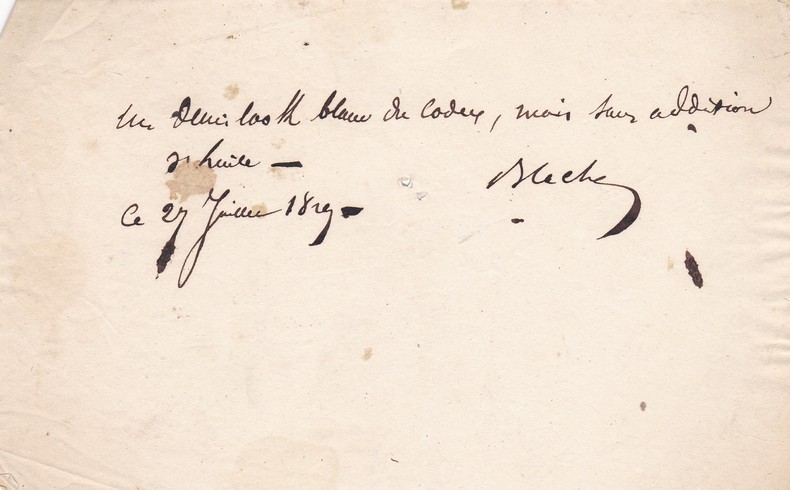 un demi look blanc du codex, mais sans addition
d'huile —
Ce 27 Juillet 1829